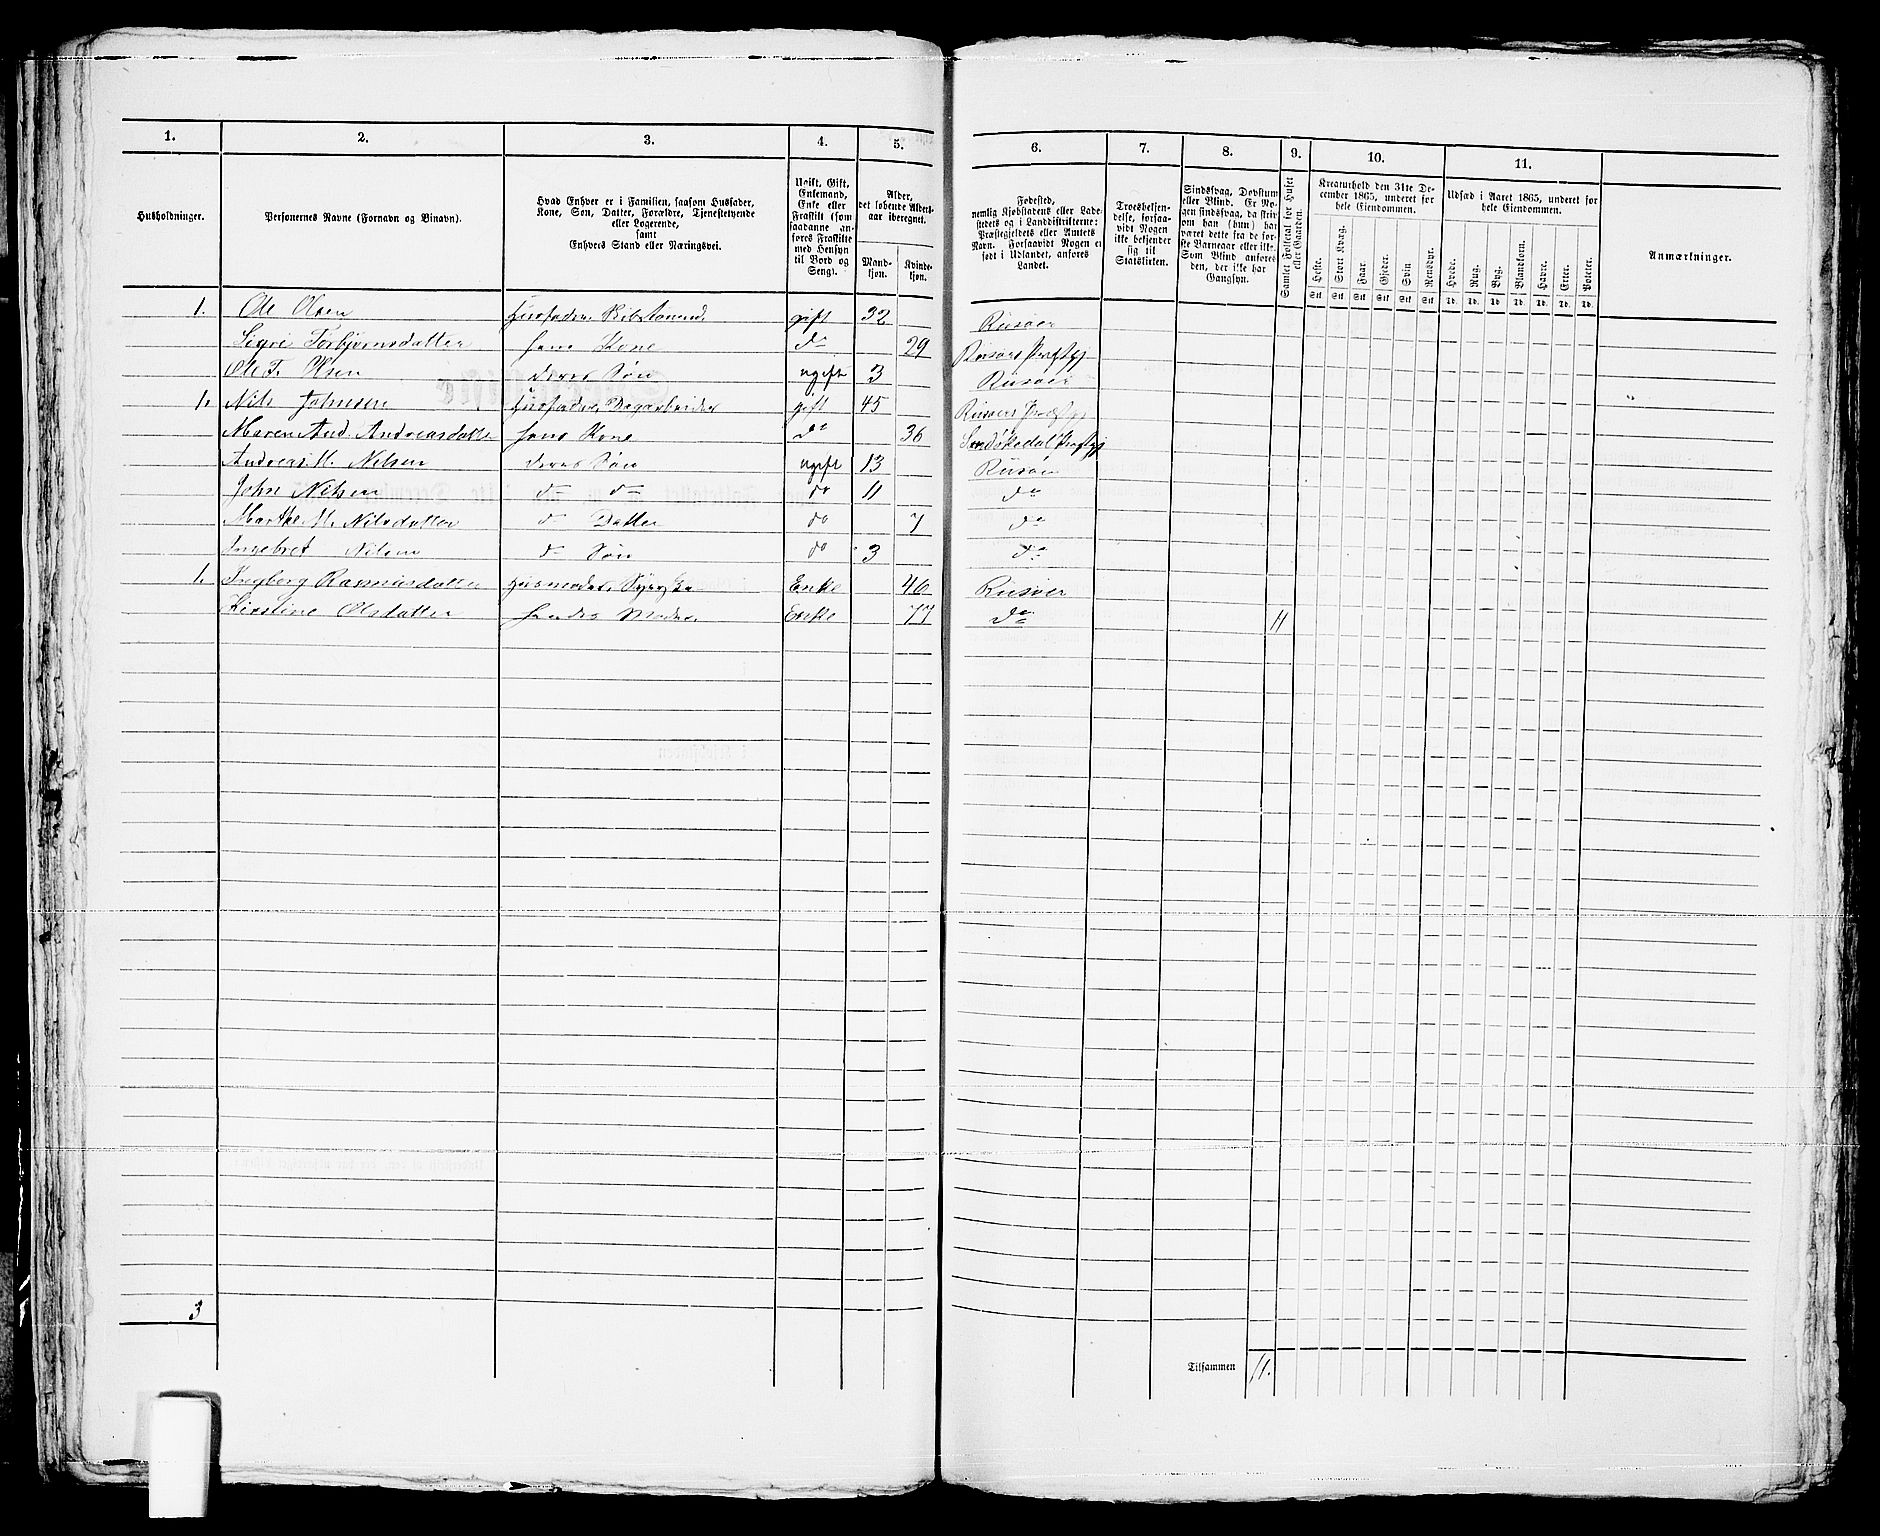 1. 2. 3. 4. 5. 6. 7. 8. 9. 10. 11.
Husholdninger.
Personernes Navne (Fornavn og Binavn).
Hvad Enhver er i Familien, saasom Husfader,
Kone, Søn, Datter, Forældre, Tjenestetyende
eller Logerende,
samt
Enhvers Stand eller Næringsvei.
Ugift, Gift,
Enkemand,
Enke eller
Fraskilt (som
saadanne an-
føres Fraskilte
med Hensyn
til Bord og
Seng).
Alder,
det løbende Alders-
aar iberegnet.
Mand-
kjøn.
Kvinde-
kjøn.
Fødested,
nemlig Kjøbstadens eller Lade-
stedets og i Landdistrikterne:
Præstegjeldets eller Amtets
Navn. Forsaavidt Nogen er
født i Udlandet, anføres
Landet.
Troesbekjen-
delse, forsaa-
vidt Nogen
ikke bekjender
sig til
Statskirken.
Sindssvag, Døvstum
eller Blind. Er No-
gen sindssvag, da skriv
om han (hun) har
været dette fra de før-
ste Barneaar eller ikke.
Som Blind anføres
den, der ikke har
Gangsyn.
Samlet Folketal for Huset
eller Gaarden.
Kreaturhold den 31te De-
cember 1865, underet for
hele Eiendommen.
Heste. Stort Kvæg. Faar. Gjeder. Svin Rensdyr.
Stk Stk Stk Stk Stk Stk
Udsæd i Aaret 1865, underet for
hele Eiendommen.
Hvede. Rug. Byg. Blandkorn. Havre. Erter. Poteter.
Td. Td. Td. Td. Td. Td. Td.
Anmærkninger.
1. Ole Olsen Husfader, gift 32 Riisøer
Sigri Torbjørnsdatter hans Kone do 29 Riisøers Præstgj
Ole T. Olsen deres Søn ugift 3 Riisøer
1. Nils Johnsen Husfader, Dagarbeider gift 45 Riisøers Præstgj
Maren And. Andreasdatter hans Kone do 36 Søndeledal Præstgj
Andreas M. Nilsen deres Søn ugift 13 Riisøer
John Nilsen do do do 11 do
Marthe M. Nilsdatter do Datter do 7 do
Ingebret Nilsen do Søn do 3 do
1. Ingborg Rasmusdatter Husmoder, Syerske Enke 46 Riisøer
Kirstine Olsdatter hendes Moder Enke 77 do 11
3
Tilsammen 11.